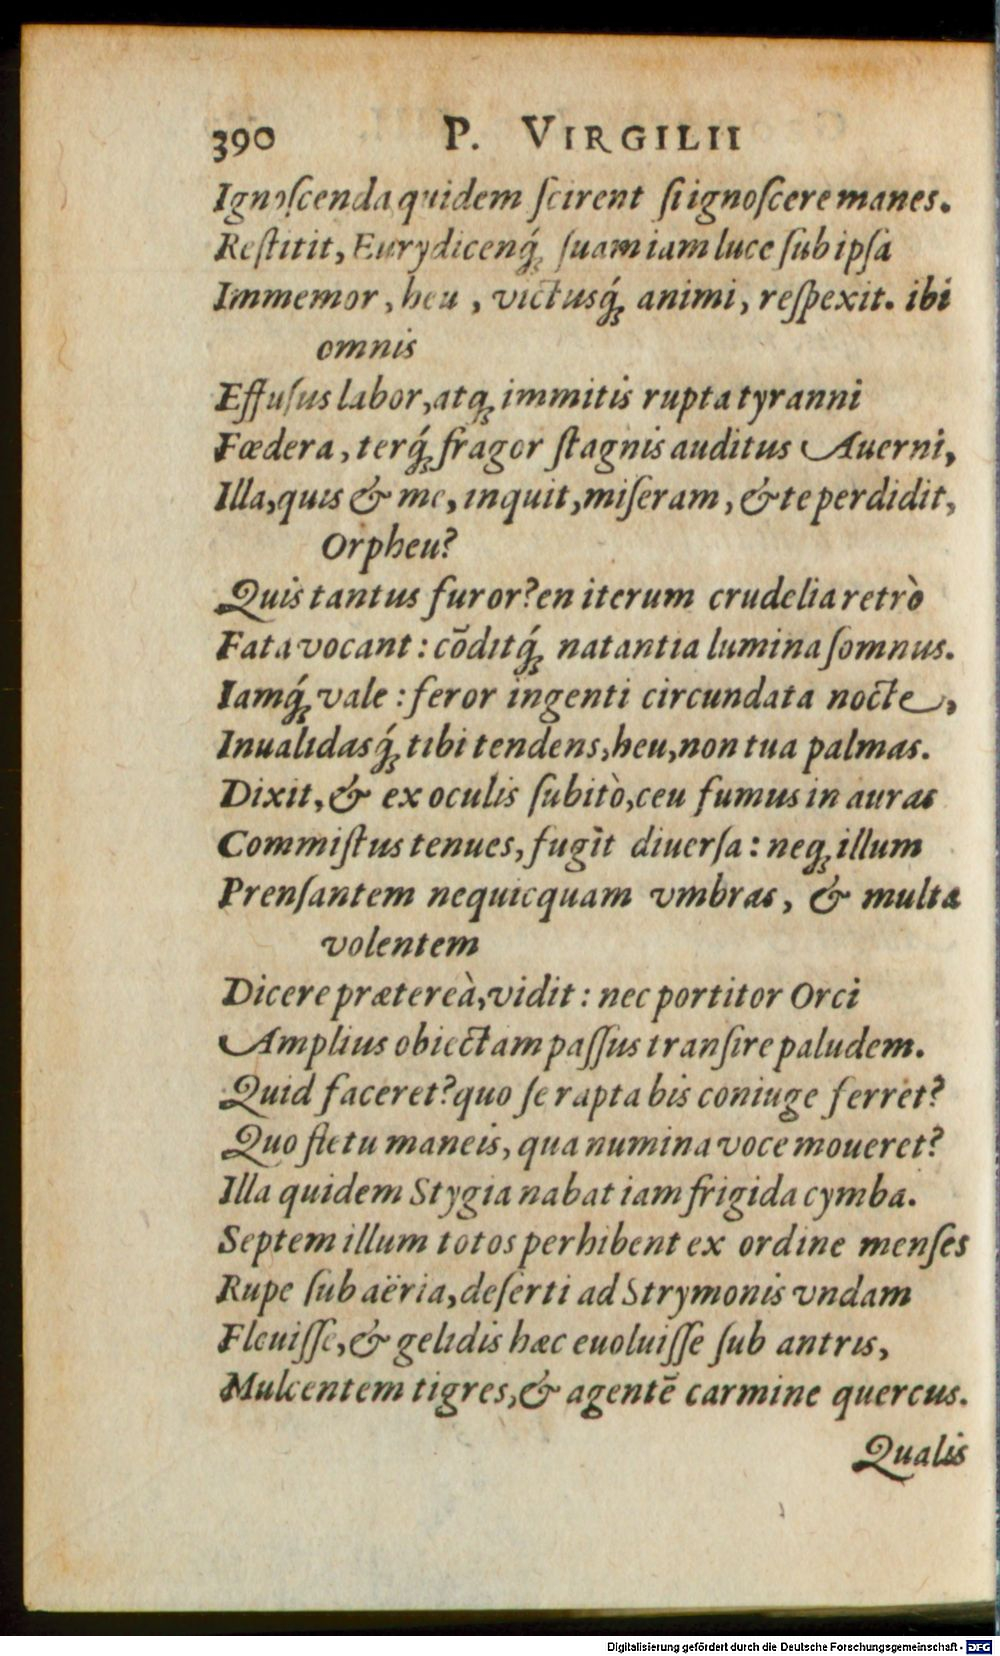 390 P. VIRGILII
Ignoſcenda quidem ſcirent ſi ignoſcere manes.
Reſtitit, Eurydicenq́; ſuam iam luce ſub ipſa
Immemor, heu, victusq́; animi, reſpexit. ibi
omnis
Effuſus labor, atq; immitis rupta tyranni
Fœdera, terq́; fragor ſtagnis auditus Auerni,
Illa, quis & me, inquit, miſeram, & te perdidit,
Orpheu?
Quis tantus furor? en iterum crudelia retrò
Fata vocant: cōditq́; natantia lumina ſomnus.
Iamq́; vale: feror ingenti circundata nocte,
Inualidasq́; tibi tendens, heu, non tua palmas.
Dixit, & ex oculis ſubitò, ceu fumus in auras
Commiſtus tenues, fugit diuerſa: neq; illum
Prenſantem nequicquam vmbras, & multa
volentem
Dicere prætereà, vidit: nec portitor Orci
Amplius obiectam paſſus tranſire paludem.
Quid faceret? quo ſe rapta bis coniuge ferret?
Quo fletu maneis, qua numina voce moueret?
Illa quidem Stygia nabat iam frigida cymba.
Septem illum totos perhibent ex ordine menſes
Rupe ſub aëria, deſerti ad Strymonis vndam
Fleuiſſe, & gelidis hæc euoluiſſe ſub antris,
Mulcentem tigres, & agentē carmine quercus.
Qualis
Digitalisierung gefördert durch die Deutsche Forschungsgemeinschaft - DFG